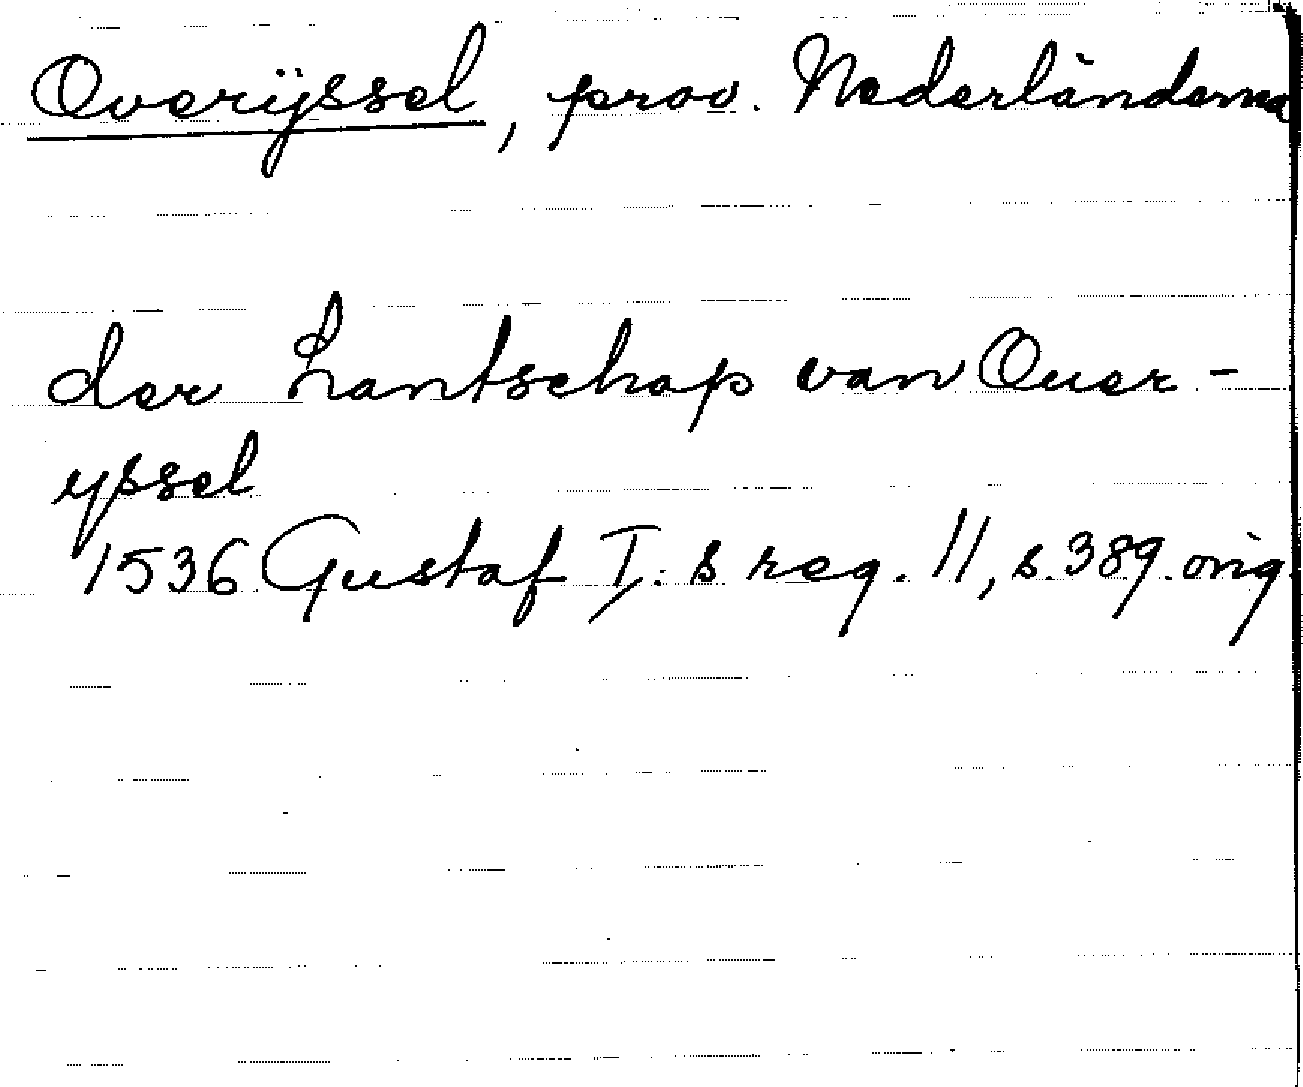 Overÿssel, prov. Nederländerna
der Lantschap van Ouer-
yssel
1536 Gustaf I:s reg. 11, s. 389. orig